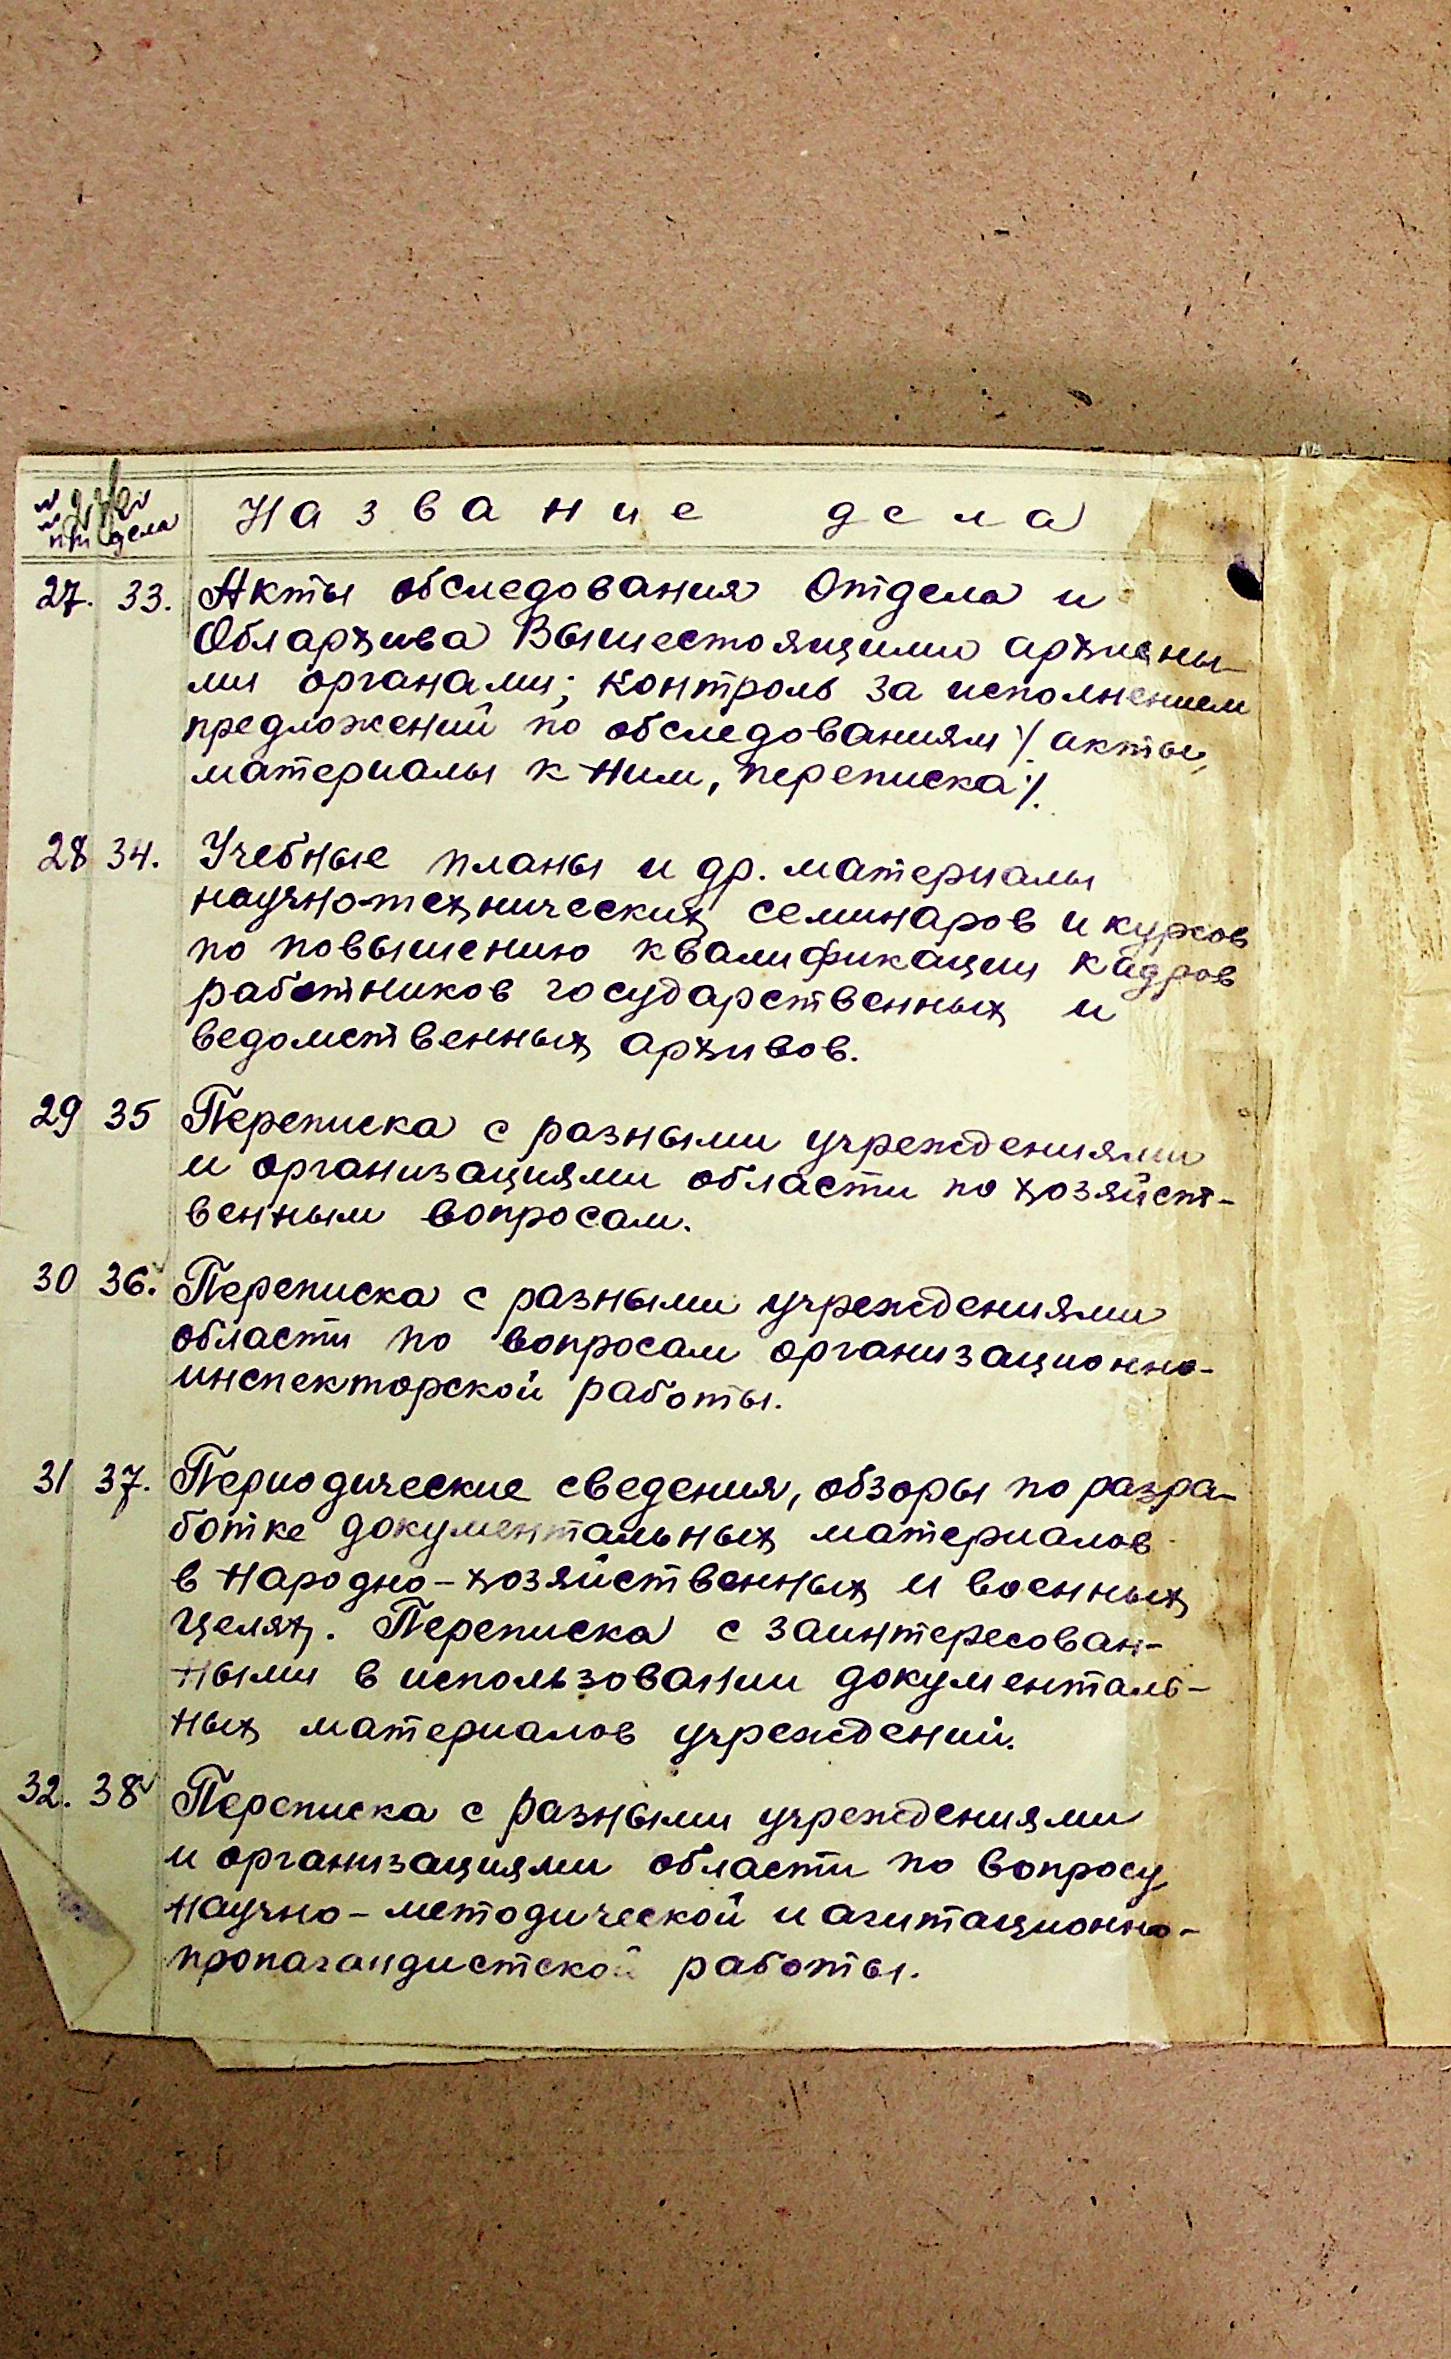 №№ пп дела Название дела
27. 33. Акты обследования Отдела и
Облархива Вышестоящими архивны-
ми органами; контроль за исполнением
предложений по обследованиям /акты,
материалы к ним, переписка/.
28 34. Учебные планы и др. материалы
научно-технических семинаров и курсов
по повышению квалификации кадров
работников государственных и
ведомственных архивов.
29 35 Переписка с разными учреждениями
и организациями области по хозяйст-
венным вопросам.
30 36. Переписка с разными учреждениями
области по вопросам организационно-
инспекторской работы.
31 37. Периодические сведения, обзоры по разра-
ботке документальных материалов
в народно-хозяйственных и военных
целях. Переписка с заинтересован-
ными в использовании документаль-
ных материалов учреждений.
32. 38 Переписка с разными учреждениями
и организациями области по вопросу
научно-методической и агитационно-
пропагандистской работы.